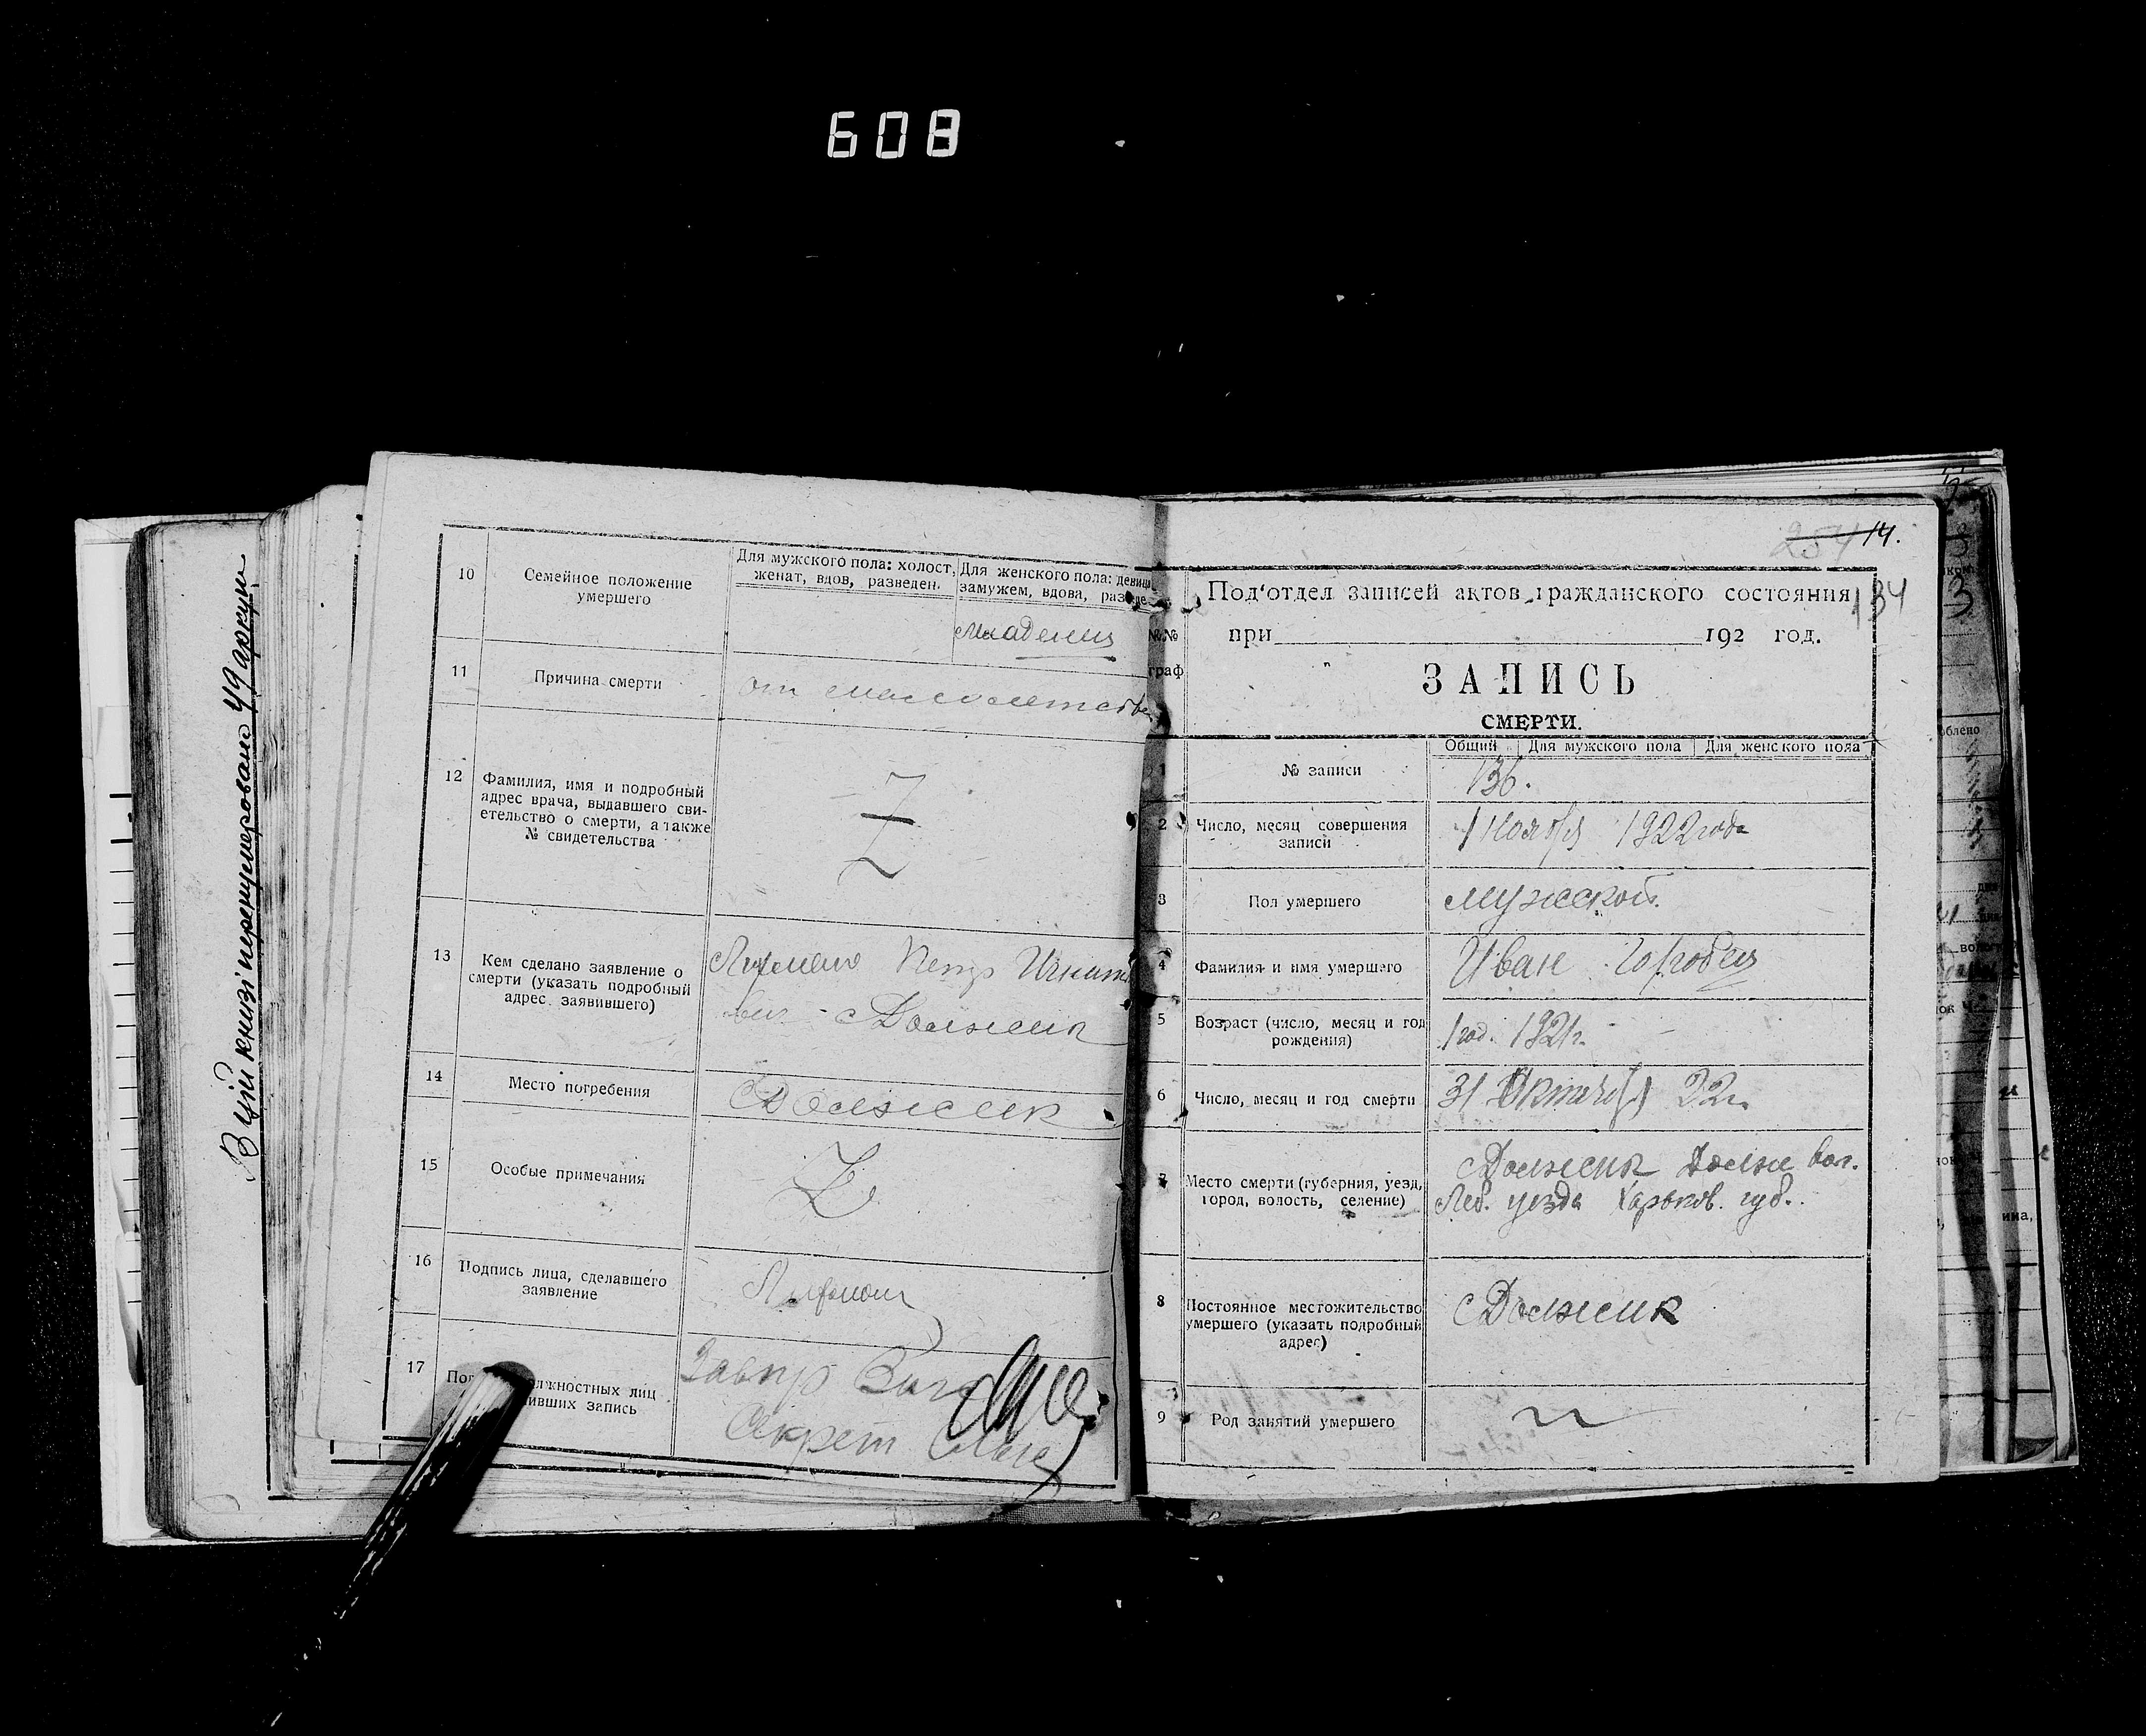 608
В цій книзі перенумеровано 49 аркуш
10
Семейное положение
умершего
Для мужского пола: холост,
женат, вдов, разведен.
Для женского пола: девица
замужем, вдова, разведе
Младенец
11
Причина смерти
от малолетства
12
Фамилия, имя и подробный
адрес врача, выдавшего сви-
етельство о смерти, а также
№ свидетельства
Z
13
Кем сделано заявление о
смерти (указать подробный
адрес заявившего)
Петр Игнат
вич с Должик
14
Место погребения
с Должик
15
Особые примечания
Z
16
Подпись лица, сделавшего
заявление
17
лжностных лиц
ивших запись
Завпр
Секрет
254 14.
134
Под'отдел записей актов гражданского состояния
при 192 год.
№№
граф
ЗАПИСЬ
СМЕРТИ.
Общий Для мужского пола Для женского пола
1
№ записи
136.
2
Число, месяц совершения
записи
1 Ноября 1922 года
3
Пол умершего
мужской.
4
Фамилия и имя умершего
Иван Городец
5
Возраст (число, месяц и год
рождения)
1 год. 1921 г.
6
Число, месяц и год смерти
31 Октября 22 г.
7
Место смерти (губерния, уезд,
город, волость, селение)
с Должик Должи вол.
Леб. уезда Харьков. губ.
8
Постоянное местожительство
умершего (указать подробный
адрес)
с Должик
9
Род занятий умершего